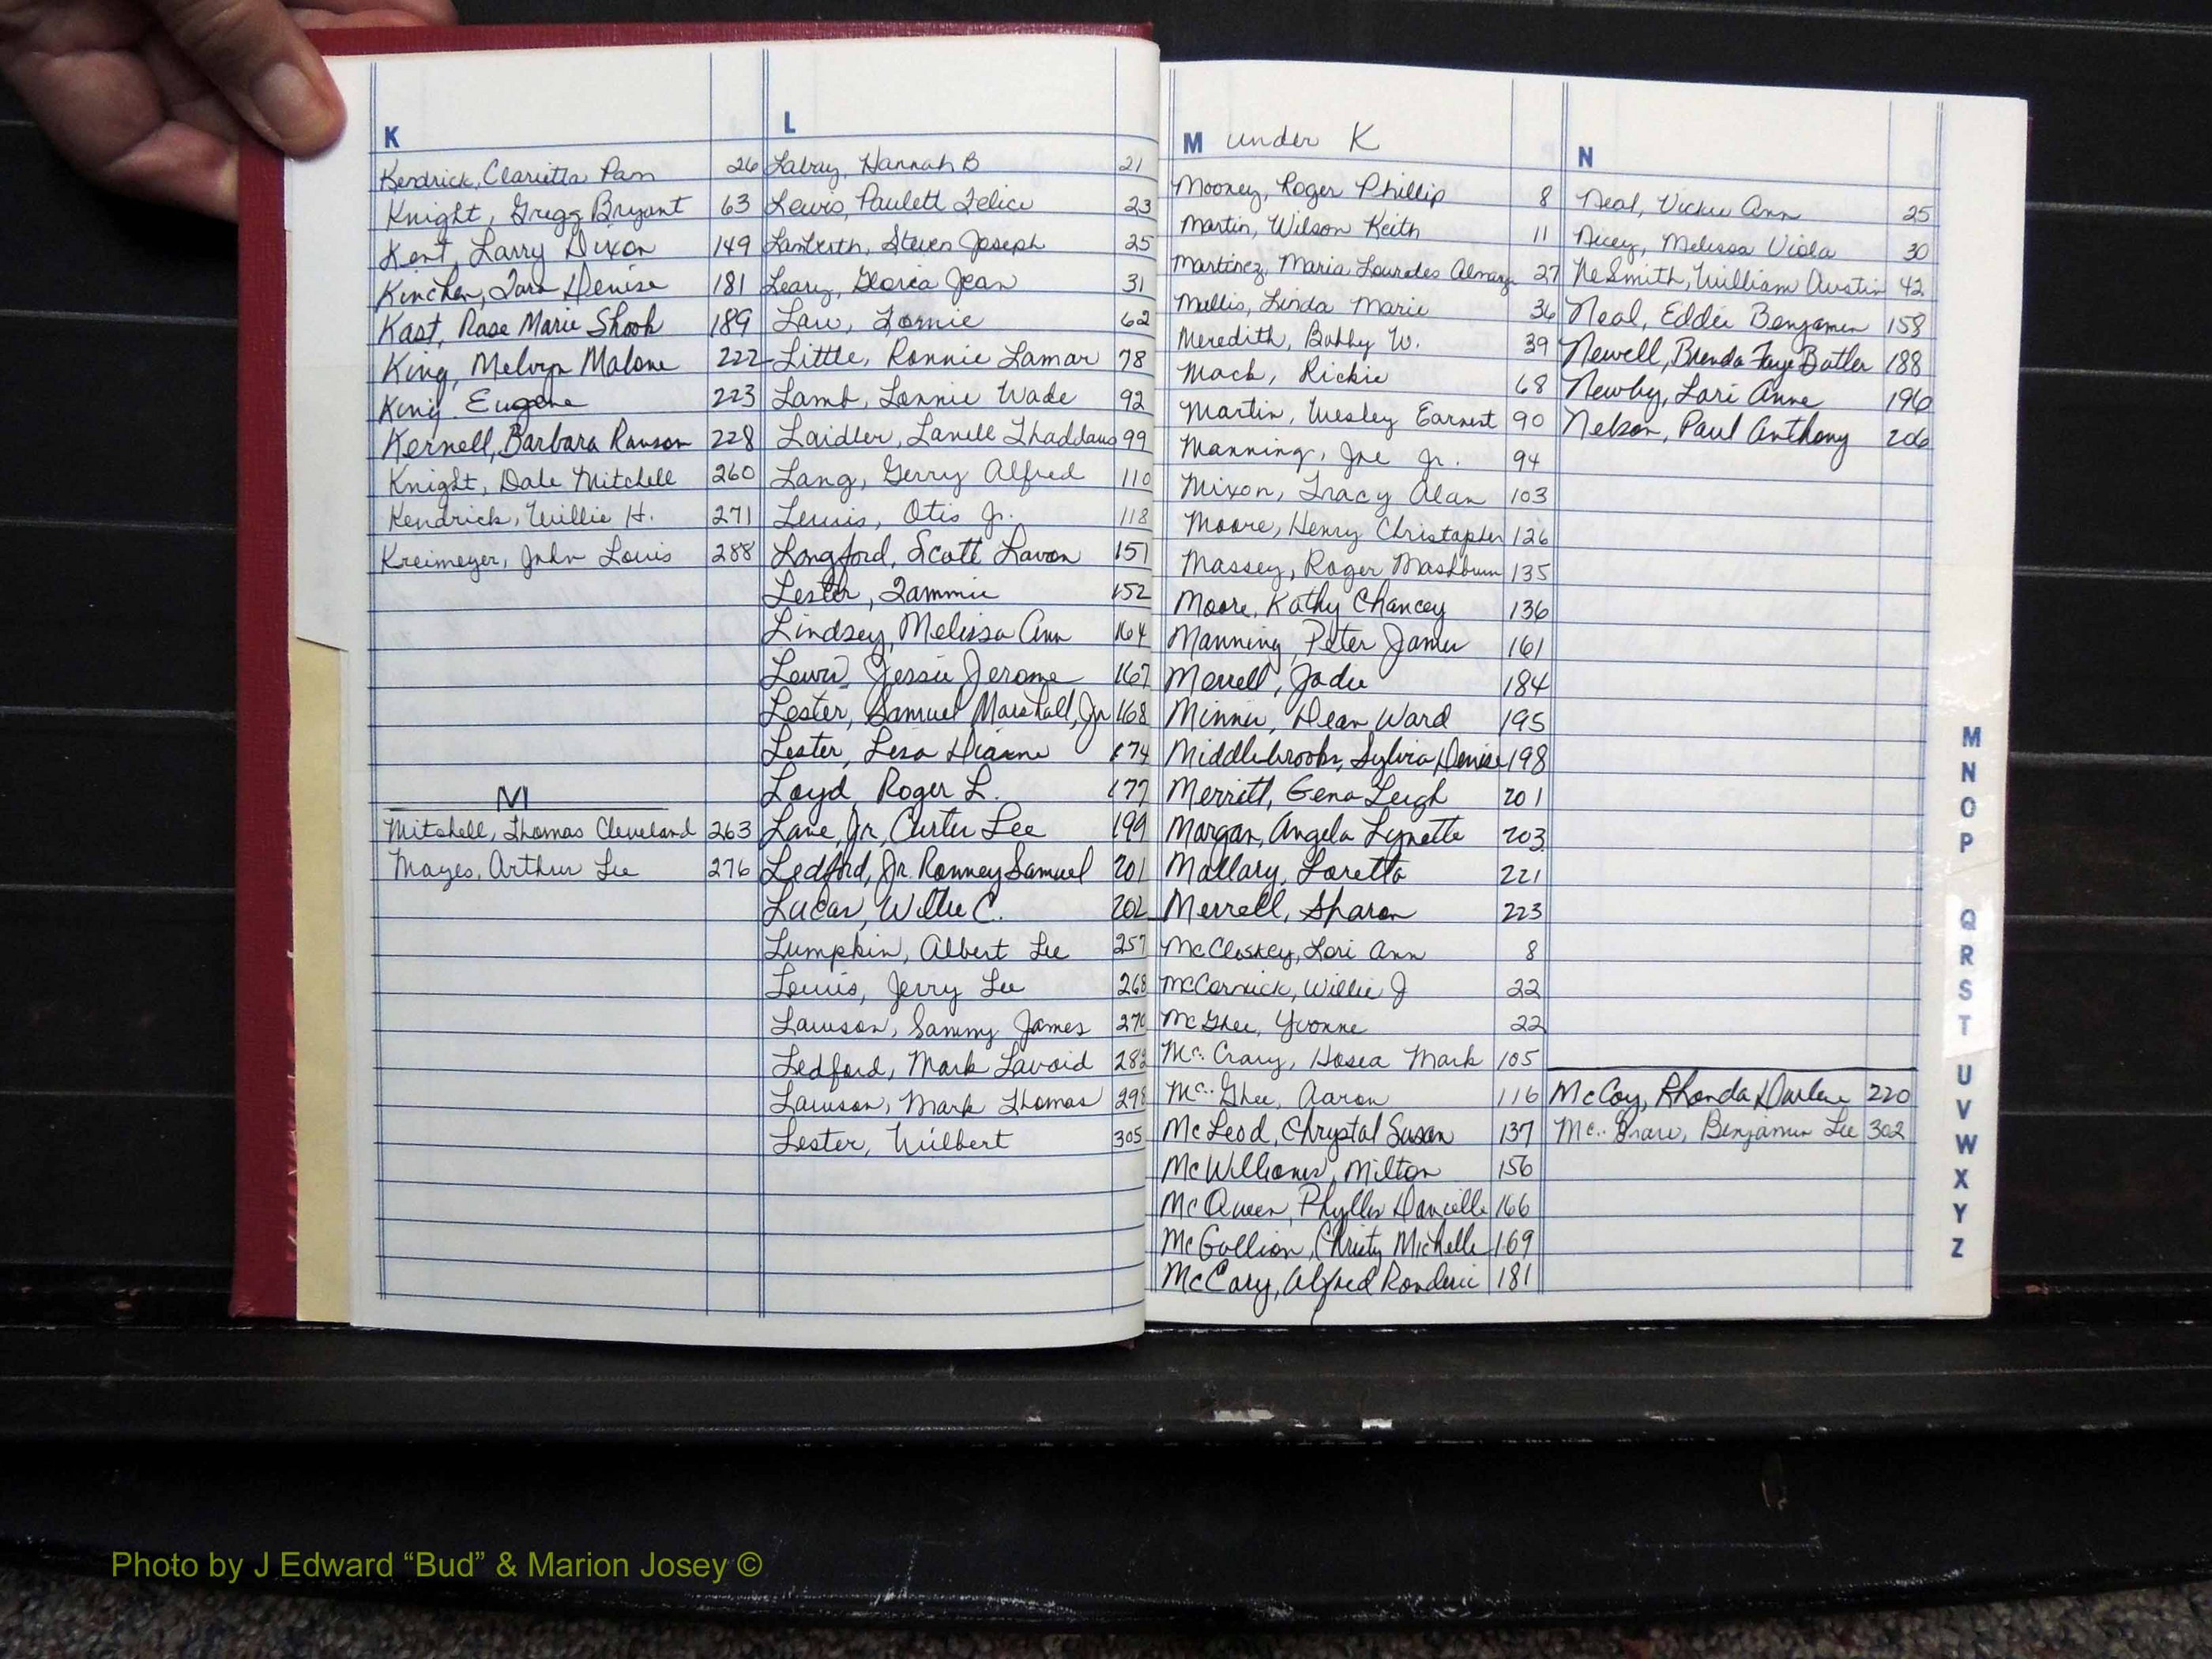 K
Kendrick, Clarietta Pam 26
Knight, Gregg Bryant 63
Kent, Larry Dixon 149
Kinchen, Tara Denise 181
Kast, Rose Marie Shook 189
King, Melvyn Malone 222
King, Eugene 223
Kernell, Barbara Ranson 228
Knight, Dale Mitchell 260
Kendrick, Willie H. 271
Kreimeyer, John Louis 288
M
Mitchell, Thomas Cleveland 263
Mayes, Arthur Lee 276
L
Labray, Hannah B 21
Lewis, Paulett Felice 23
Lamberth, Steven Joseph 25
Leary, Gloria Jean 31
Law, Lonnie 62
Little, Ronnie Lamar 78
Lamb, Lonnie Wade 92
Laidler, Lanell Thaddaus 99
Lang, Gerry Alfred 110
Lewis, Otis Jr. 118
Langford, Scott Lavon 151
Lester, Tammie 152
Lindsey, Melissa Ann 164
Lewis, Jessie Jerome 167
Lester, Samuel Marshall, Jr 168
Lester, Lisa Dianne 174
Loyd, Roger L. 177
Lane, Jr, Curtis Lee 199
Ledford, Jr. Ronney Samuel 201
Lucas, Willie C. 202
Lumpkin, Albert Lee 257
Lewis, Jerry Lee 268
Lawson, Sammy James 270
Ledford, Mark Lavoid 282
Lawson, Mark Thomas 298
Lester, Wilbert 305
M under K
Mooney, Roger Phillip 8
Martin, Wilson Keith 11
Martinez, Maria Lourdes 27
Mallis, Linda Marie 36
Meredith, Bobby W. 39
Mack, Rickie 68
Martin, Wesley Earnest 90
Manning, Joe Jr. 94
Mixon, Tracy Alan 103
Moore, Henry Christopher 126
Massey, Roger Mashburn 135
Moore, Kathy Chancey 136
Manning, Peter James 161
Merrell, Jodie 184
Dean Ward 195
Middlebrooks, Sylvia Denise 198
Merritt, Gena Leigh 201
Morgan, Angela Lynette 203
Mallary, Loretta 221
Merrell, Sharon 223
McCloskey, Lori Ann 8
McCormick, Willie J 22
McGhee, Yvonne 22
Mc. Crary, Hosea Mark 105
Mc. Ghee, Aaron 116
McLeod, Chrystal Susan 137
McWilliams, Milton 156
McQueen, Phyllis Danielle 166
McGullion, Christy Michelle 169
McCary, Alfred Ronderic 181
N
Neal, Vickie Ann 25
Nicey, Melissa Viola 30
NeSmith, William Austin 42
Neal, Eddie Benjamen 158
Newell, Brenda Faye Butler 188
Newby, Lori Anne 196
Nelson, Paul Anthony 206
McCoy, Rhonda Darlene 220
Benjamin Lee 302
M
N
O
P
Q
R
S
T
U
V
W
X
Y
Z
Photo by J Edward “Bud” & Marion Josey ©